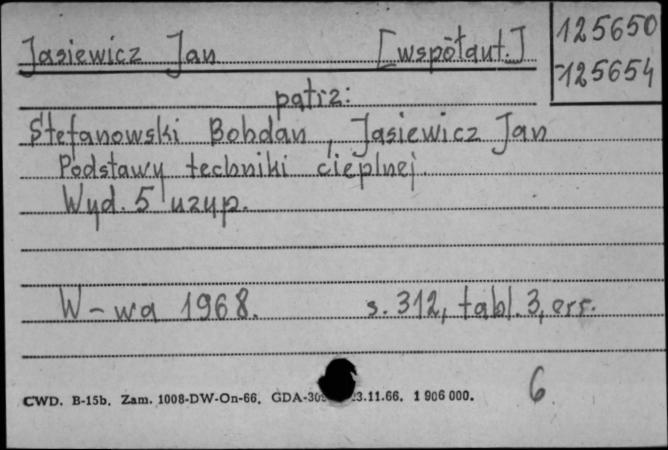 Jasiewicz Jan [współaut.] 125650
-125654
patrz:
Stefanowski Bohdan, Jasiewicz Jan
Podstawy techniki cieplnej.
Wyd. 5 uzup.
W-wa 1968. s. 312, tabl. 3, err.
6
CWD. B-15b. Zam. 1008-DW-On-66. 3.11.66. 1 906 000.